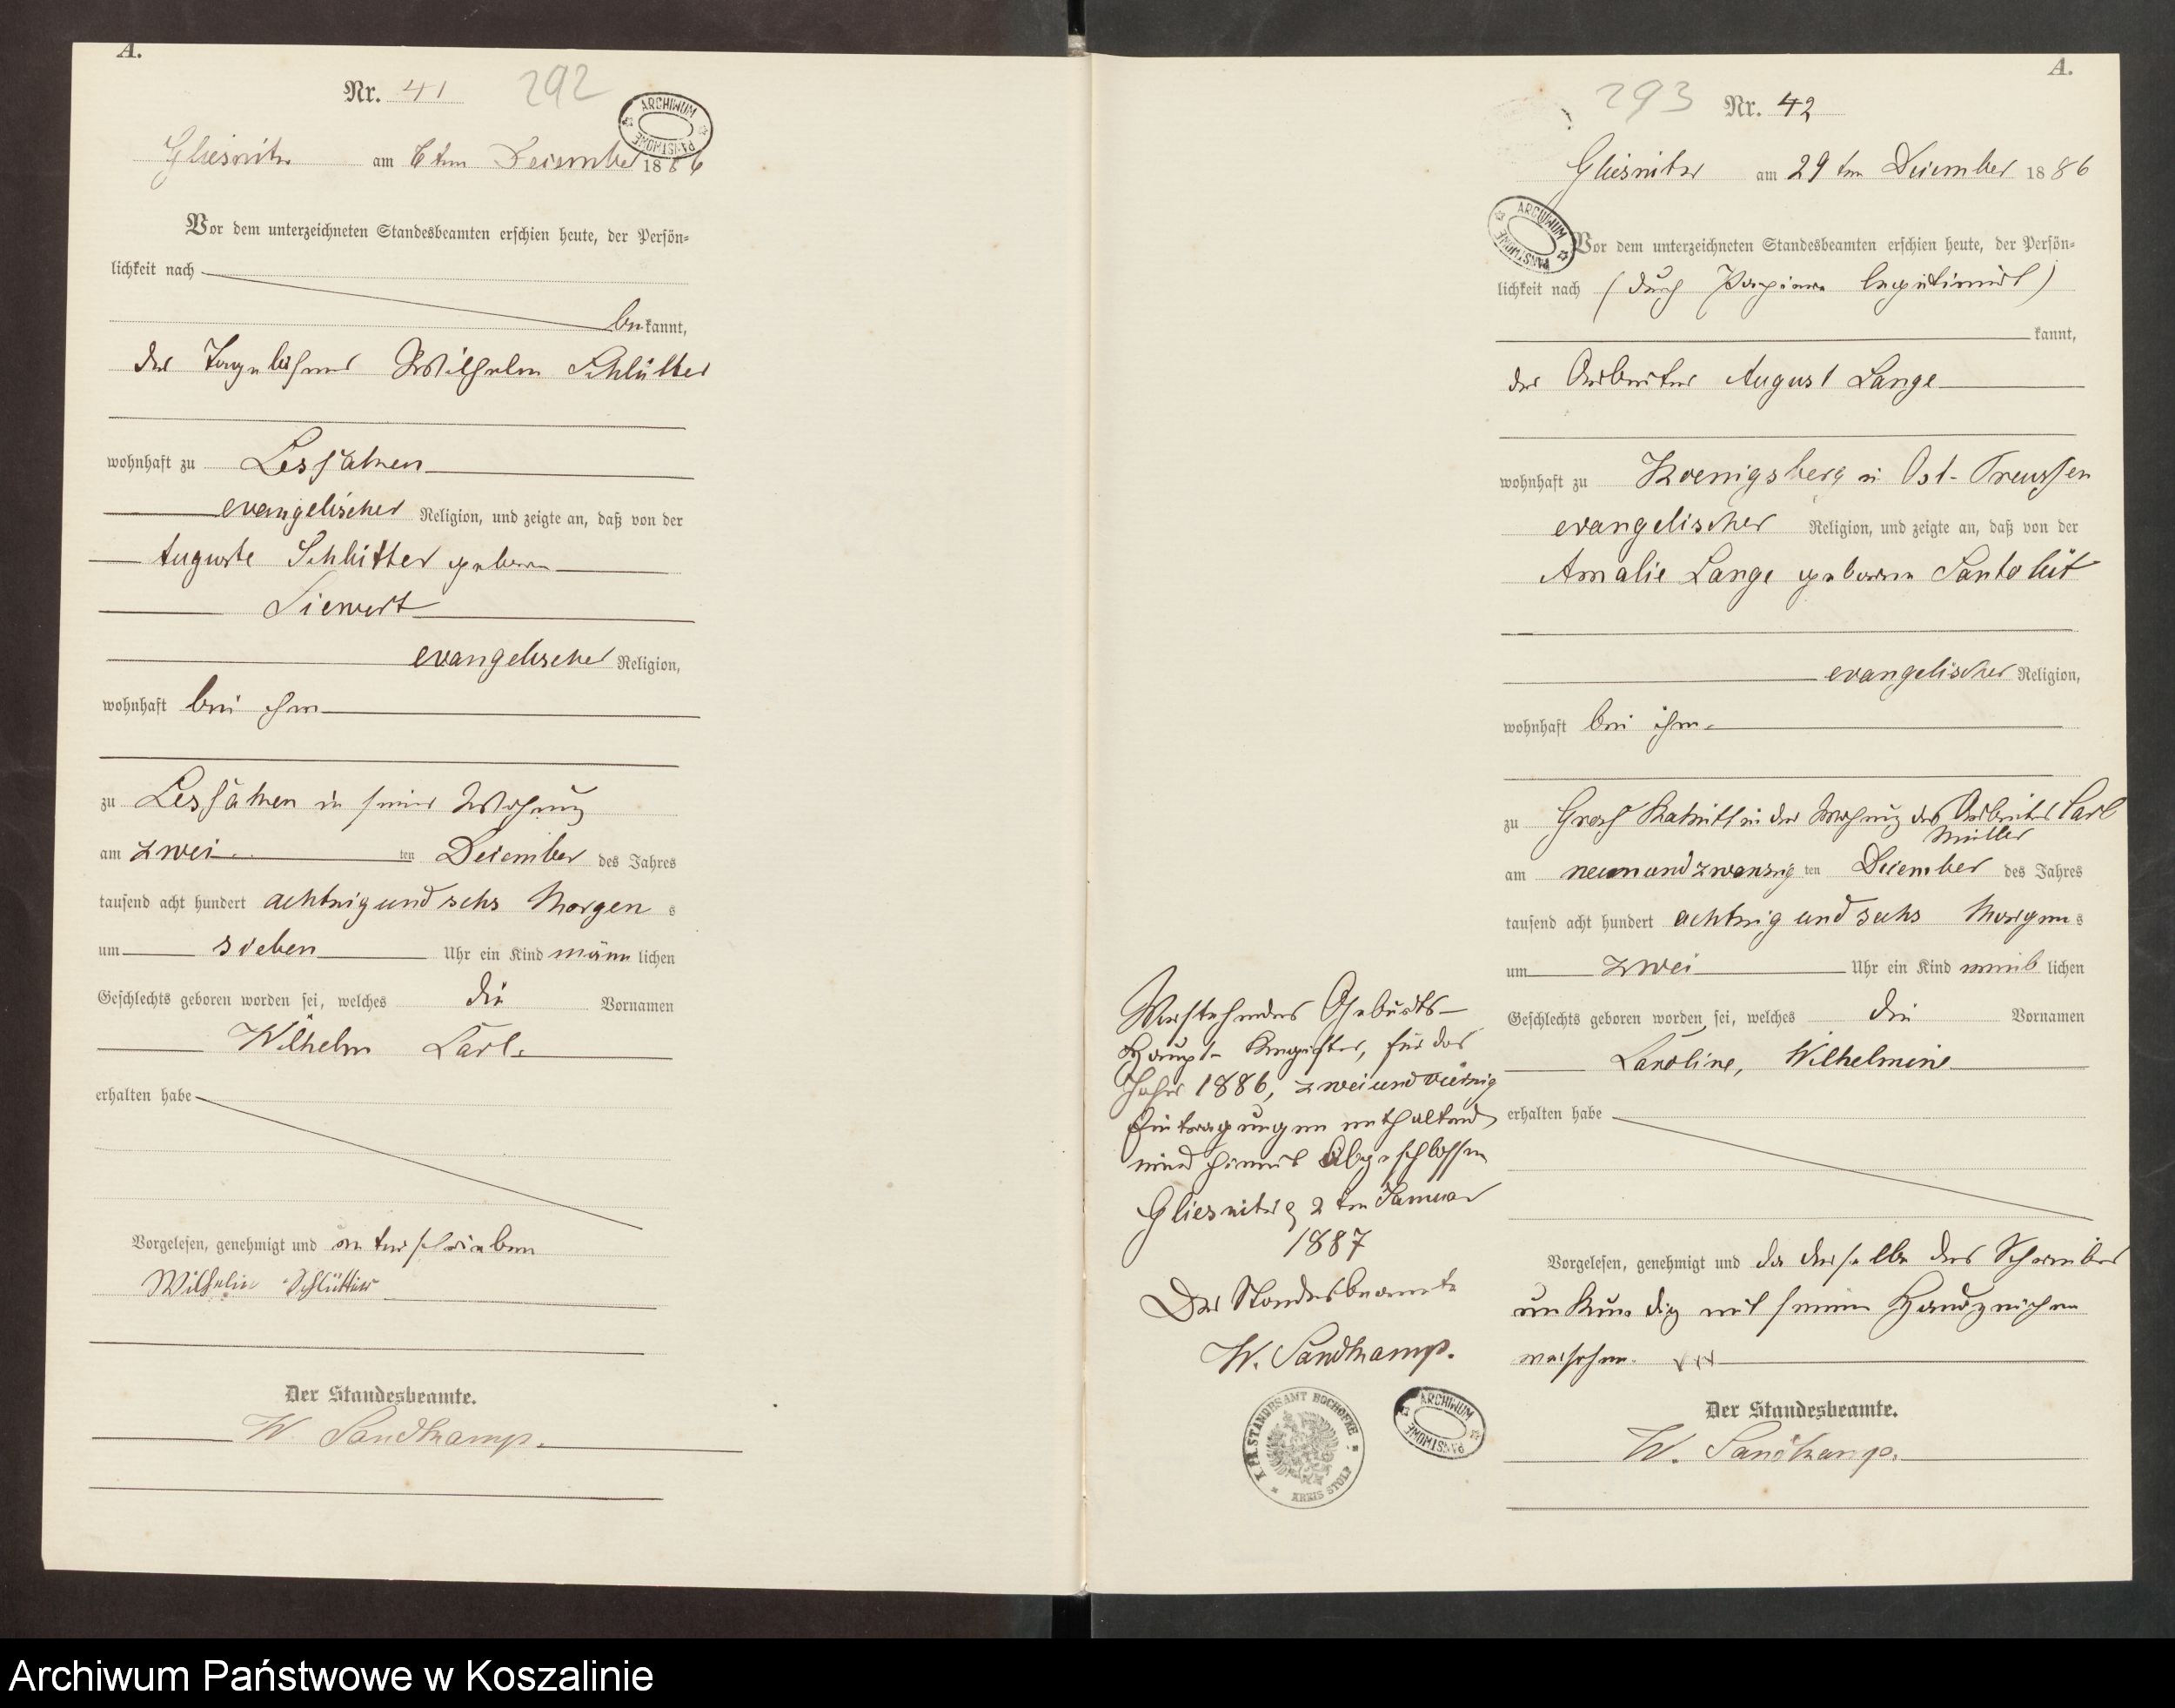 A.
Nr. 41
292
ARCHIWUM PAŃSTWOWE
Gliesnitz am 6ten December 1886
Vor dem unterzeichneten Standesbeamten erschien heute, der Persön-
lichkeit nach
bekannt,
der Tagelöhner Wilhelm Schlütter
wohnhaft zu Lessaken
evangelischer Religion, und zeigte an, daß von der
Auguste Schlütter geborne
Siewert
evangelischer Religion,
wohnhaft bei ihm
zu Lessaken in seiner Wohnung
am zwei ten December des Jahres
tausend acht hundert achtzig und sechs Morgen s
um sieben Uhr ein Kind männlichen
Geschlechts geboren worden sei, welches die Vornamen
Wilhelm Carl
erhalten habe
Vorgelesen, genehmigt und unterschrieben
Wilhelm Schlütter
Der Standesbeamte.
W. Sandkamp.
A.
293
Nr. 42
Gliesnitz am 29ten December 1886
ARCHIWUM PAŃSTWOWE
Vor dem unterzeichneten Standesbeamten erschien heute, der Persön-
lichkeit nach (durch Papiere legitimirt)
kannt,
der Arbeiter August Lange
wohnhaft zu Koenigsberg in Ost-Preussen
evangelischer Religion, und zeigte an, daß von der
Amalie Lange geborne
evangelischer Religion,
wohnhaft bei ihm
zu Gross in der Wohnung des Arbeiters Carl
Müller
am neunundzwanzig ten December des Jahres
tausend acht hundert achtzig und sechs Morgens
um zwei Uhr ein Kind weiblichen
Geschlechts geboren worden sei, welches die Vornamen
Caroline, Wilhelmine
erhalten habe
Vorgelesen, genehmigt und da derselbe des Schreibens
unkundig mit seinem Handzeichen
versehen. XXX
Der Standesbeamte.
W. Sandkamp.
Vorstehendes Geburts-
Haupt-Register, für das
Jahr 1886, zweiundvierzig
Eintragungen enthaltend
wird hiermit abgeschlossen
Gliesnitz 2ten Januar
1887
Der Standesbeamte
W. Sandkamp.
K. PR. STANDESAMT HOCHOFKE * KREIS STOLP *
ARCHIWUM PAŃSTWOWE
Archiwum Państwowe w Koszalinie